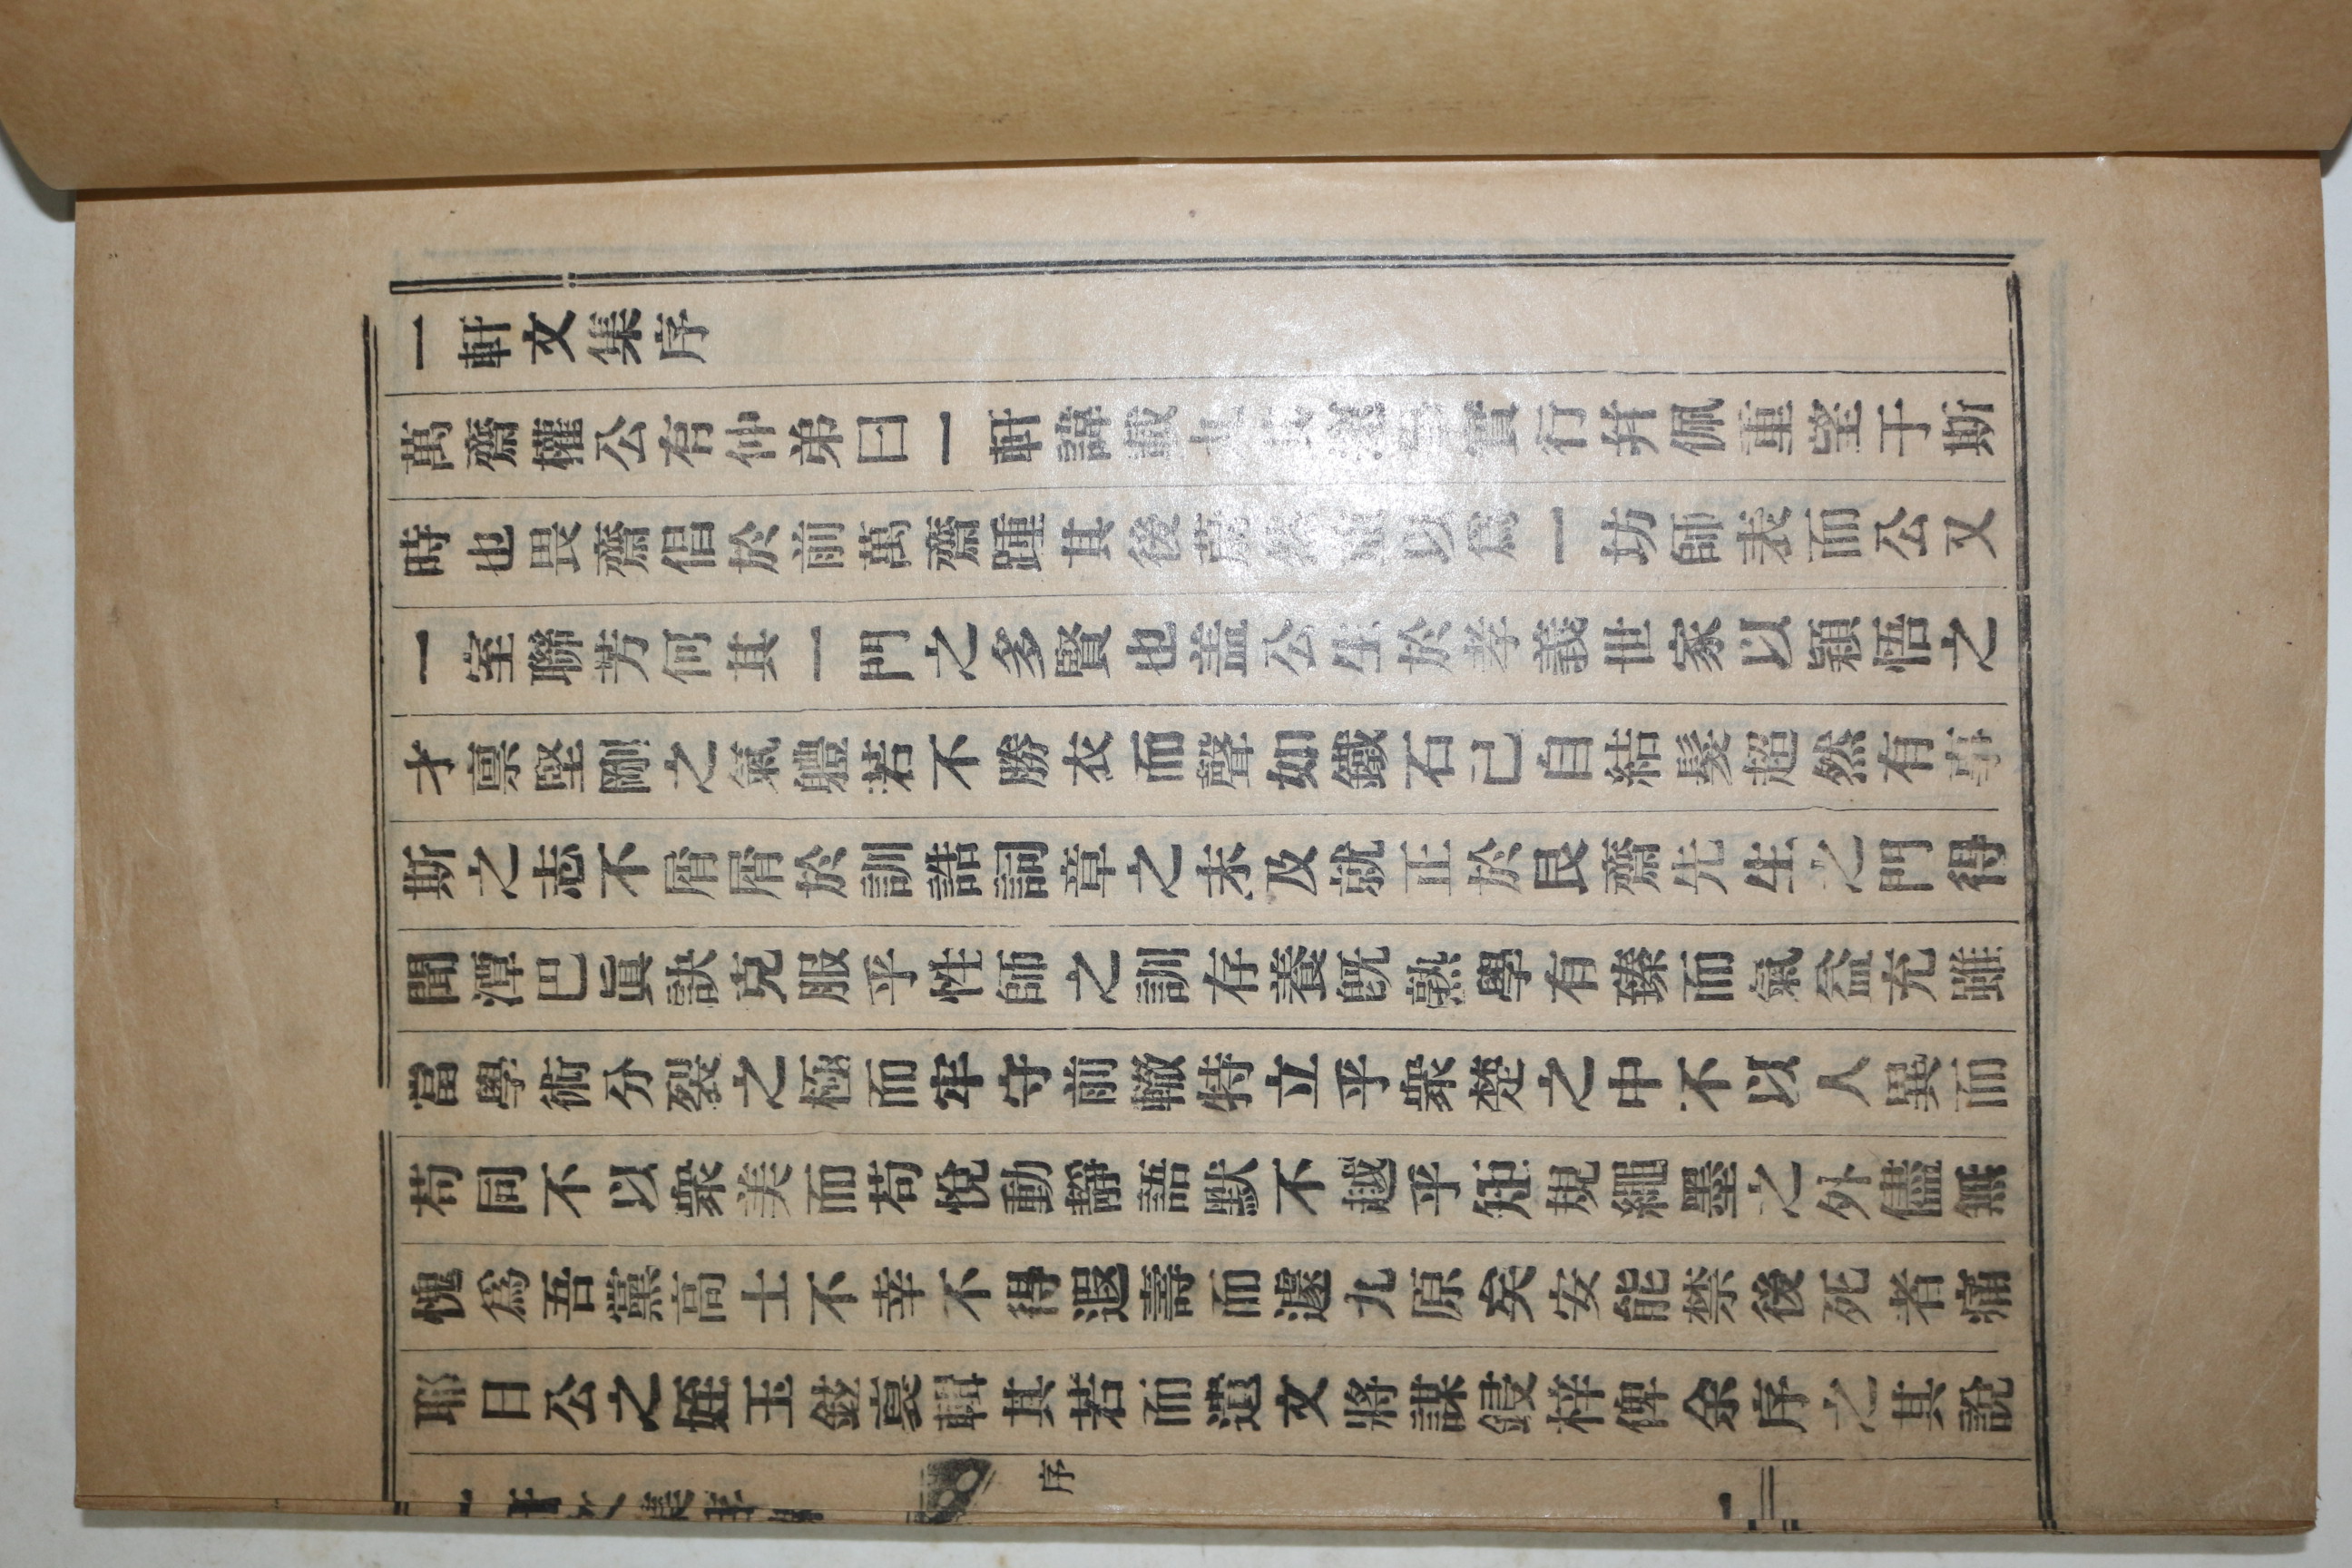 一軒文集序
萬齋權公有仲弟曰一軒諱載九實行幷佩重望于斯
時也畏齋倡於前萬齋踵其後蔚然並以爲一坊師表而公又
一室聯芳何其一門之多賢也盖公生於孝義世家以穎悟之
才稟堅剛之氣軆若不勝衣而聲如鐵石己自結髮超然有事
斯之志不屑屑於訓誥詞章之末及就正於艮齋先生之門得
聞潭巴眞訣克服乎性師之訓存養旣熟學有臻而氣益充雖
當學術分裂之極而牢守前轍特立乎衆楚之中不以人異而
苟同不以衆美而苟悅動靜語默不越乎矩規繩墨之外儘無
愧爲吾黨高士不幸不得遐壽而遽九原矣安能禁後死者痛
耶日公之姪玉鉉裒輯其若而遺文將謀鋟梓俾余序之其說
一軒文集序
序
一